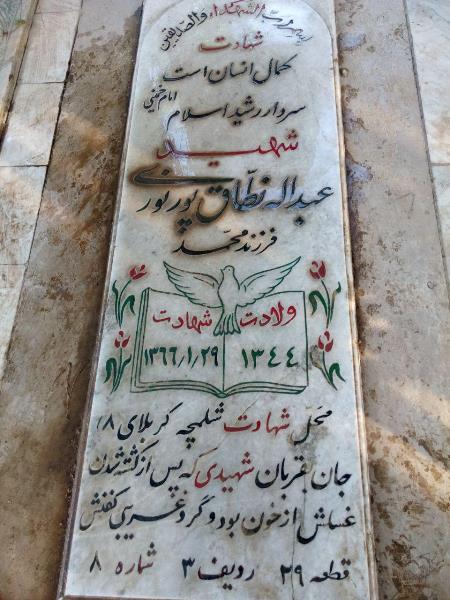 بسم رب الشهداء والصدیقین
شهادت
کمال انسان است
امام خمینی
سردار رشید اسلام
شهید
عبداله نطاق پور نوری
فرزند محمد
ولادت شهادت
۱۳۴۴ ۱۳۶۶/۱/۲۹
محل شهادت شلمچه کربلای ۸
جان بقربان شهیدی که پس از کشته شدن
غسلش از خون بود و گرد غریبی کفنش
قطعه ۲۹ ردیف ۳ شماره ۸